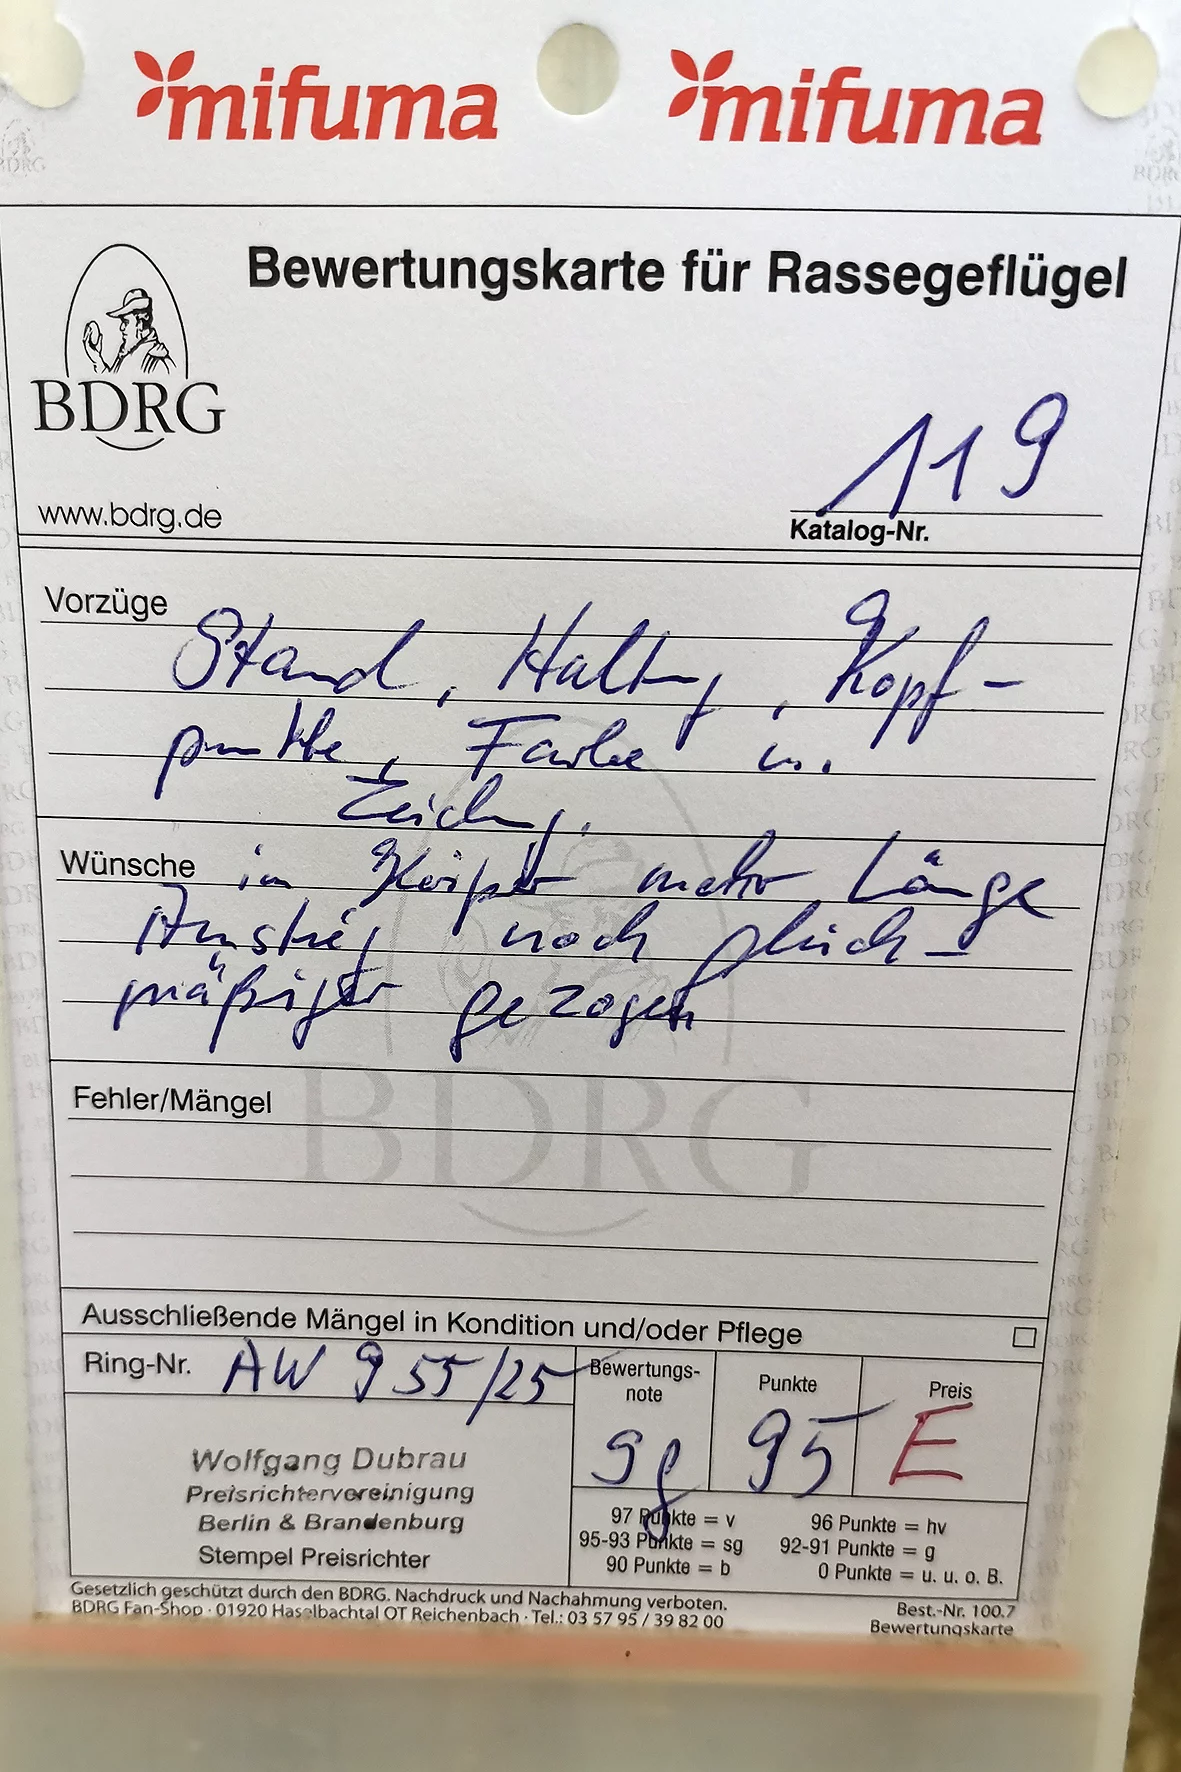 mifuma mifuma
Bewertungskarte für Rassegeflügel
BDRG
www.bdrg.de
119
Katalog-Nr.
Vorzüge
Stand, Haltung, Kopf-
punkte, Farbe u.
Zeichng.
Wünsche im Körper mehr Länge
Anstieg noch gleich-
mäßiger gezogen
BDRG
Fehler/Mängel
Ausschließende Mängel in Kondition und/oder Pflege
Ring-Nr. AW 955/25
Bewertungs-
note
sg
Punkte
95
Preis
E
Wolfgang Dubrau
Preisrichtervereinigung
Berlin & Brandenburg
Stempel Preisrichter
97 Punkte = v 96 Punkte = hv
95-93 Punkte = sg 92-91 Punkte = g
90 Punkte = b 0 Punkte = u. u. o. B.
Gesetzlich geschützt durch den BDRG. Nachdruck und Nachahmung verboten.
BDRG Fan-Shop · 01920 Haselbachtal OT Reichenbach · Tel.: 03 57 95 / 39 82 00
Best.-Nr. 100.7
Bewertungskarte